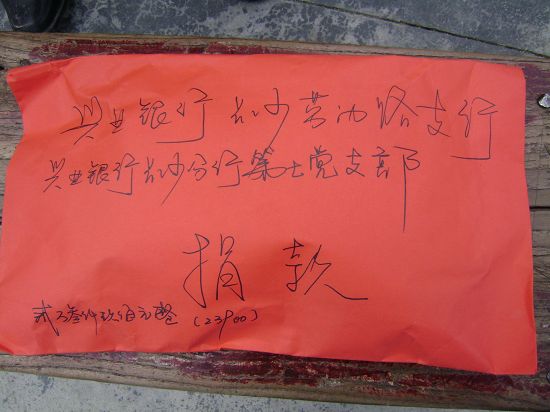 兴业银行长沙劳动路支行
兴业银行长沙分行第七党支部
捐款
贰万叁仟玖佰元整（23900）